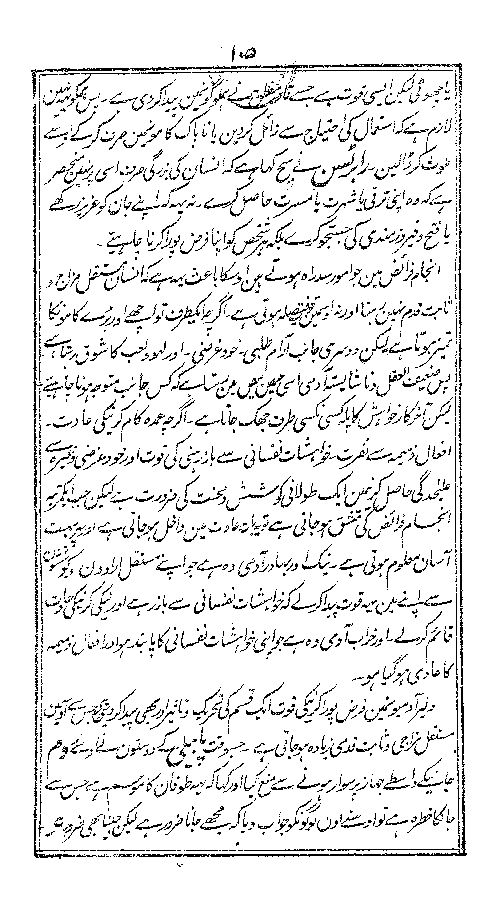 ۱۰۵
یا چھوٹی لیکن ایسی قوت ہے جسے قادر مطلق نے ہم لوگونمین پیدا کردی ہے ۔ پس ہمکو نہین
لازم ہے کہ استعمال کی احتیاج سے زائل کردین یا ناپاک کامونمین صرف کرکے اُسے
ملوث کر ڈالین ۔ رابرٹسن نے سچ کہا ہے کہ انسان کی بزرگی صرف اسی پر نہین منحصر
ہے کہ وہ اپنی ترقی یا شہرت یا مسرت حاصل کرے ۔ نہ یہہ کہ اپنے جان کو عزیز رکھے
یا فتح و فیروزمندی کی جستجو کرے بلکہ ہر شخص کو اپنا فرض پورا کرنا چاہیے ۔
انجام فرائض مین جو امور سد راہ ہوتے ہین اوسکا باعث یہہ ہے کہ انسان مستقل مزاج و
ثابت قدم نہین رہتا اور نہ اوسمین قوت فیصلہ ہوتی ہے ۔ اگرچہ ایکطرف تو اچھے اور برے کامونکا
تمیز ہوتا ہے لیکن دوسری جانب آرام طلبی ۔ خود غرضی ۔ اور لہو و لعب کا شوق رہتا ہے
پس ضعیف العقل و ناشایستہ آدمی اسی پس و پیش مین رہتا ہے کہ کس جانب متوجہ ہونا چاہیے
لیکن آخرکار خواہش کا پلہ کسی نکسی طرف جھک جاتا ہے ۔ اگرچہ عمدہ کام کرنیکی عادت ۔
افعال ذمیمہ سے نفرت ۔ خواہشات نفسانی سے باز رہنے کی قوت اور خود غرضی وغیرہ سے
علیٰحدگی حاصل کرنیمین ایک طولانی کوشش و محنت کی ضرورت ہے لیکن جب ایکمرتبہ
انجام فرائض کی مشق ہو جاتی ہے تو یہ بات عادت مین داخل ہو جاتی ہے اور یہہ بہت
آسان معلوم ہوتی ہے ۔ نیک اور بہادر آدمی وہ ہے جو اپنے مستقل ارادون و کوششون
سے اپنے مین یہہ قوت پیدا کرلے کہ خواہشات نفسانی سے باز رہے اور نیکی کرنیکی عادت
قائم کرلے ۔ اور خراب آدمی وہ ہے جو اپنی خواہشات نفسانی کا پابند ہو اور افعال ذمیمہ
کا عادی ہو گیا ہو ۔
دلیر آدمیونمین فرض پورا کرنیکی قوت ایک قسم کی تحریک و تاثیر اور بھی پیدا کر دیتی ہے جس سے اونمین
مستقل مزاجی و ثابت قدمی زیادہ ہو جاتی ہے ۔ جسوقت پامپی کے دوستون نے اوسے روم
جانیکے واسطے جہاز پر سوار ہونے سے منع کیا اور کہا کہ یہہ طوفان کا موسم ہے جس سے
جانکا خطرہ ہے تو اوسنے اون لوگونکو جواب دیا کہ مجھے جانا ضرور ہے لیکن جینا کچھ ضرور